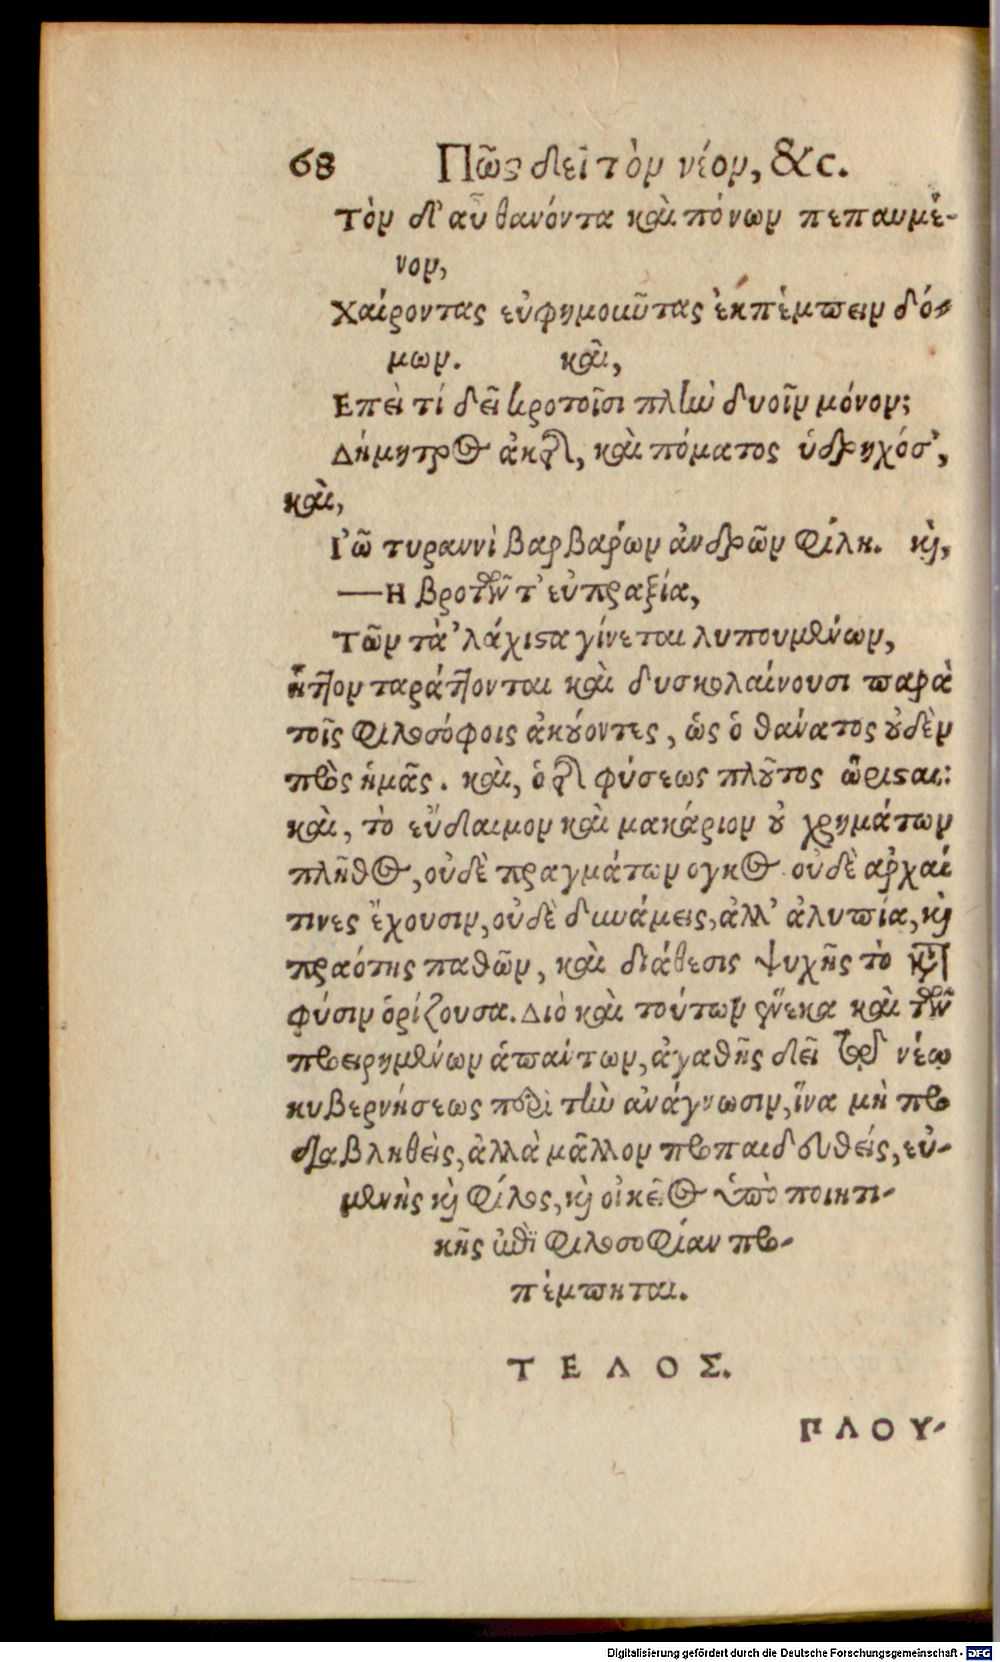 68 Πῶς δεῖ τὸν νέον, &c.
Τὸν δ' αὖ θανόντα καὶ πόνων πεπαυμέ-
νον,
Χαίροντας εὐφημοιῦτας ἐκπέμπειν δό-
μων. καὶ,
Επεὶ τί δεῖ βροτοῖσι πλὴν δυοῖν μόνον;
Δήμητρος ἀκτῆς, καὶ πόματος ὑδρηχόσ',
καὶ,
Ιὼ τυραννὶ βαρβάρων ἀνδρῶν φίλη. καὶ,
—Η βροτῶν τ' εὐπραξία,
Τῶν τὰ 'λάχιστα γίνεται λυπουμένων,
ἧττον ταράττονται καὶ δυσκολαίνουσι παρὰ
τοῖς φιλοσόφοις ἀκούοντες, ὡς ὁ θάνατος οὐδὲν
πρὸς ἡμᾶς. καὶ, ὁ τῆς φύσεως πλοῦτος ὥρισται:
καὶ, τὸ εὔδαιμον καὶ μακάριον οὐ χρημάτων
πλῆθος, οὐδὲ πραγμάτων ογκος οὐδὲ ἀρχαί
τινες ἔχουσιν, οὐδὲ δυνάμεις, ἀλλ' ἀλυπία, καὶ
πραότης παθῶν, καὶ διάθεσις ψυχῆς τὸ κατὰ
φύσιν ὁρίζουσα. Διὸ καὶ τούτων ἕνεκα καὶ τῶν
προειρημένων ἁπάντων, ἀγαθῆς δεῖ τῷ νέῳ
κυβερνήσεως περὶ τὴν ἀνάγνωσιν, ἵνα μὴ προ
διαβληθεὶς, ἀλλὰ μᾶλλον προπαιδευθείς, εὐ-
μενὴς καὶ φίλος, καὶ οἰκεῖος ὑπὸ ποιητι-
κῆς ἐπὶ φιλοσοφίαν προ-
πέμπηται.
ΤΕΛΟΣ.
ΠΛΟΥ-
Digitalisierung gefördert durch die Deutsche Forschungsgemeinschaft - DFG